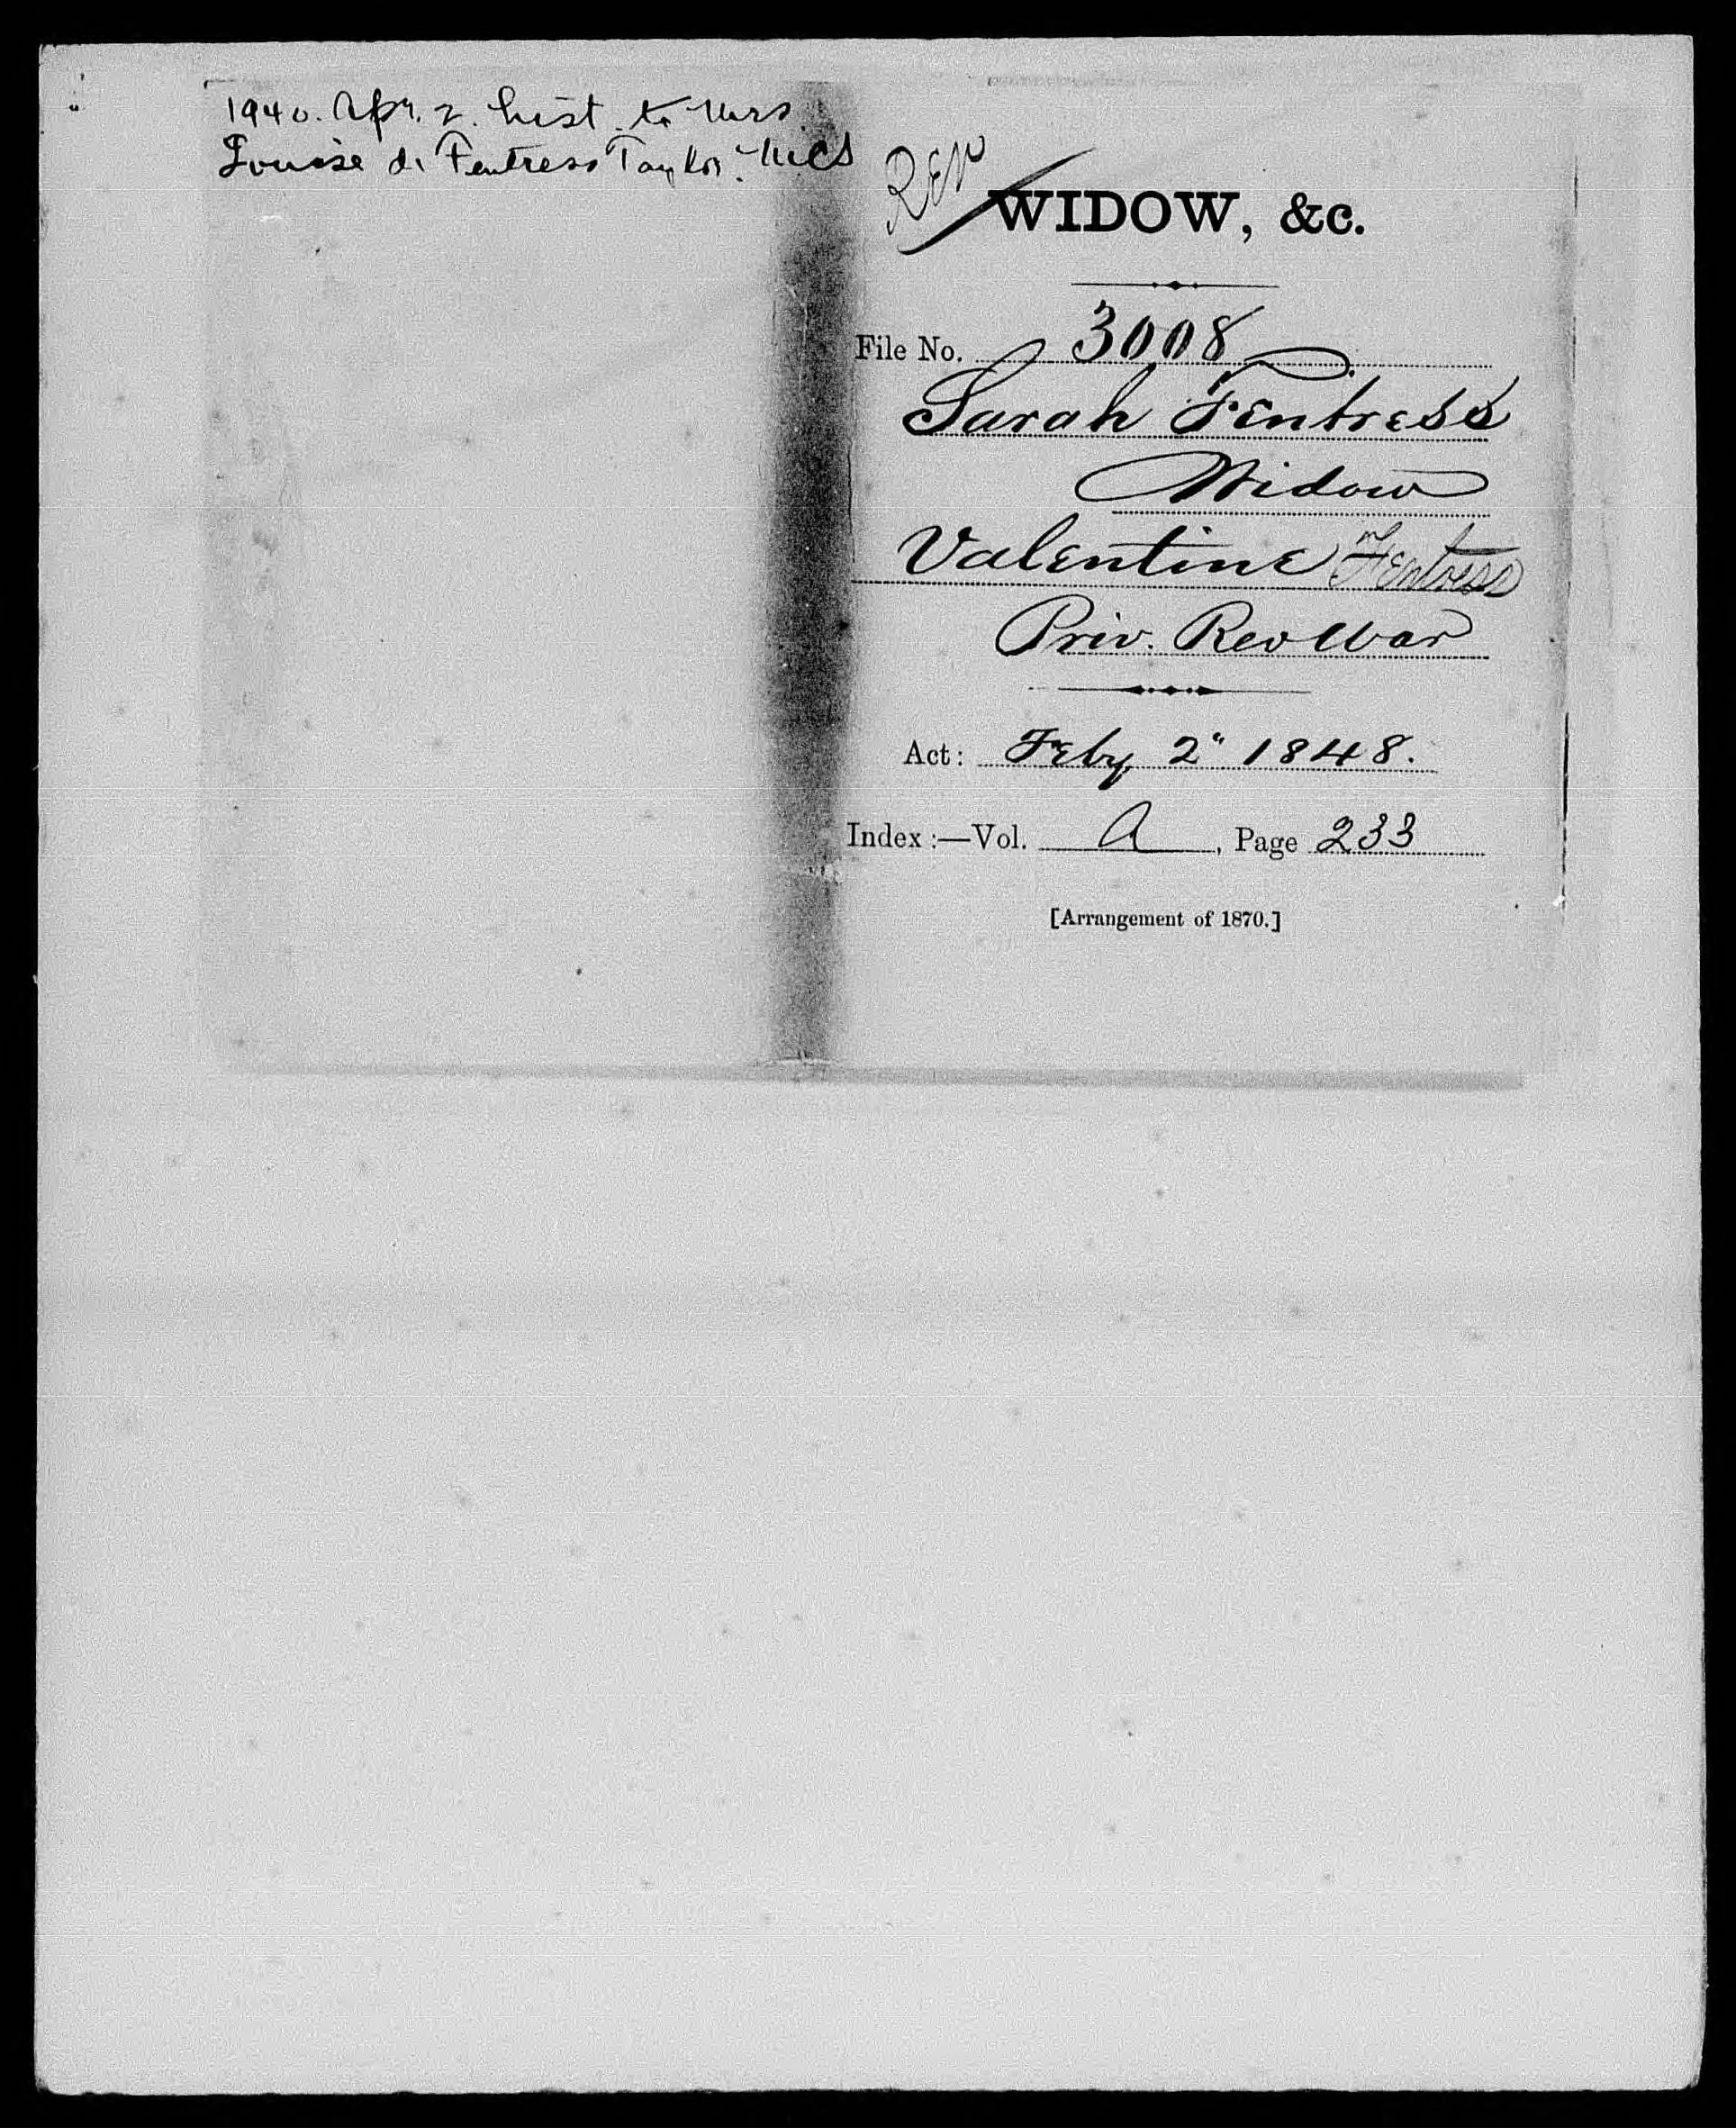 1940. Apr. 2. hist. to Mrs
Louise d. Fentress Taylor.
Rev
WIDOW, &c.
File No. 3008
Sarah Fentress
Widow
Valentine Fentress
Priv. Rev War
Act: Feby 2" 1848.
Index:—Vol. A, Page 233
[Arrangement of 1870.]